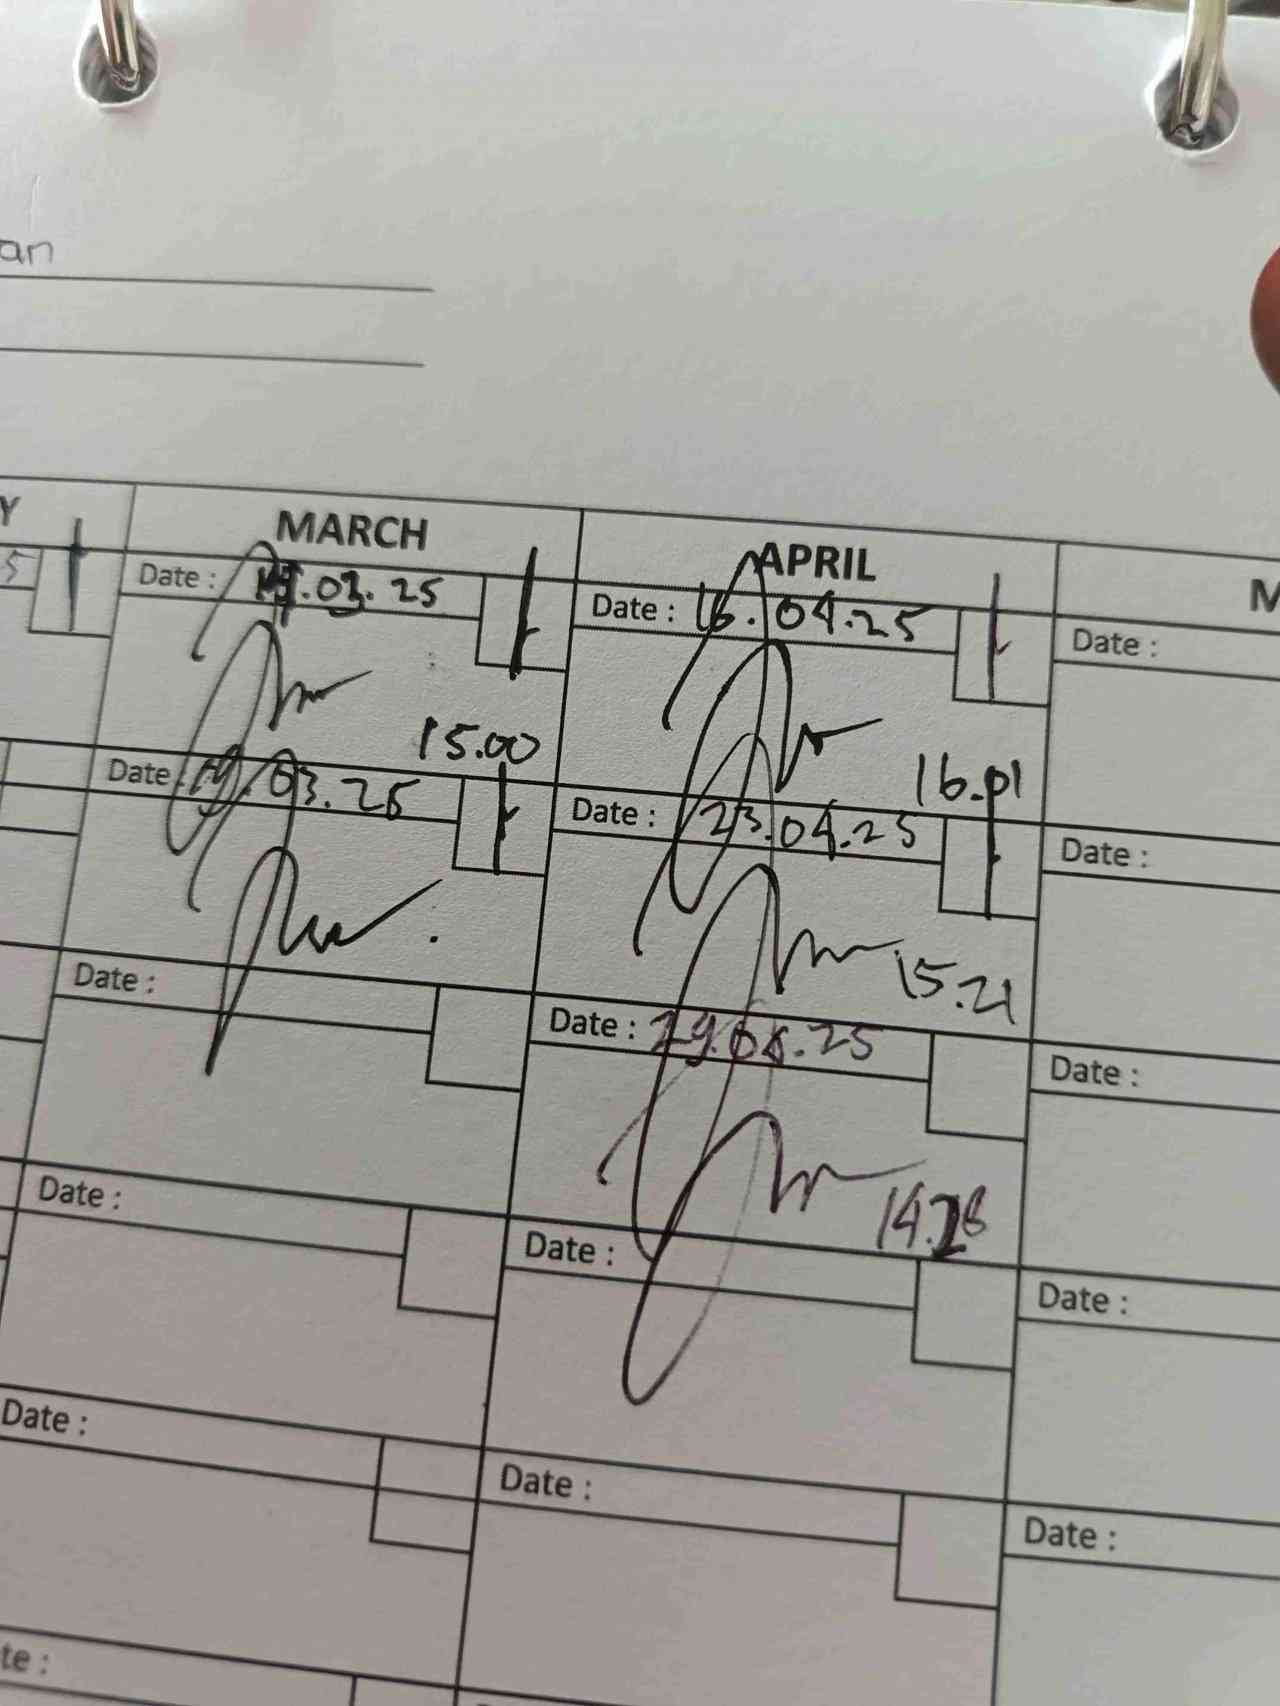 an
Y MARCH APRIL M
5 Date : .03.25 Date : 16.04.25 Date :
15.00 16.01
Date : 19.03.25 Date : 23.04.25 Date :
15.21
Date : Date : 29.04.25 Date :
14.28
Date : Date : Date :
Date : Date : Date :
te :